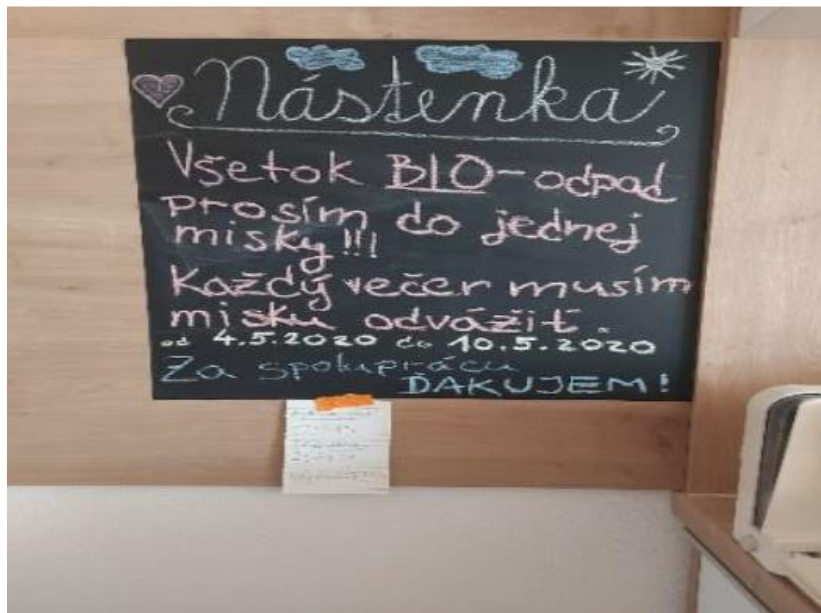 Nástenka
Všetok BIO-odpad
prosím do jednej
misky!!!
Každý večer musím
misku odvážiť.
od 4.5.2020 do 10.5.2020
Za spoluprácu
ĎAKUJEM!